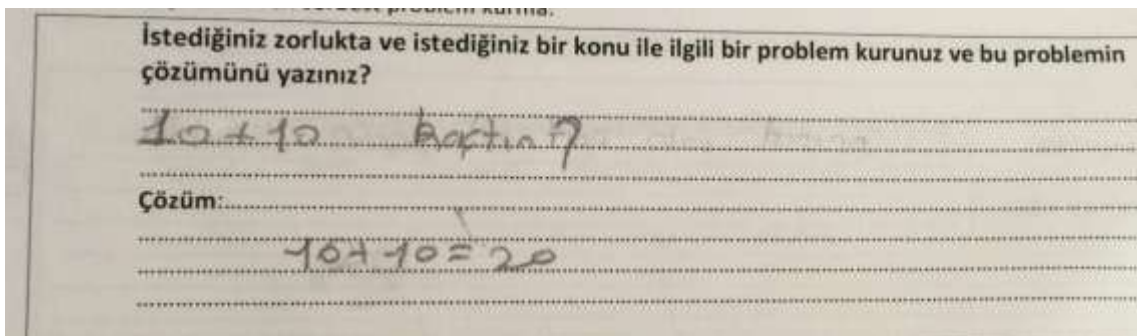 problem kurma.
İstediğiniz zorlukta ve istediğiniz bir konu ile ilgili bir problem kurunuz ve bu problemin
çözümünü yazınız?
10+10 kaçtın?
Çözüm:
10+10=20